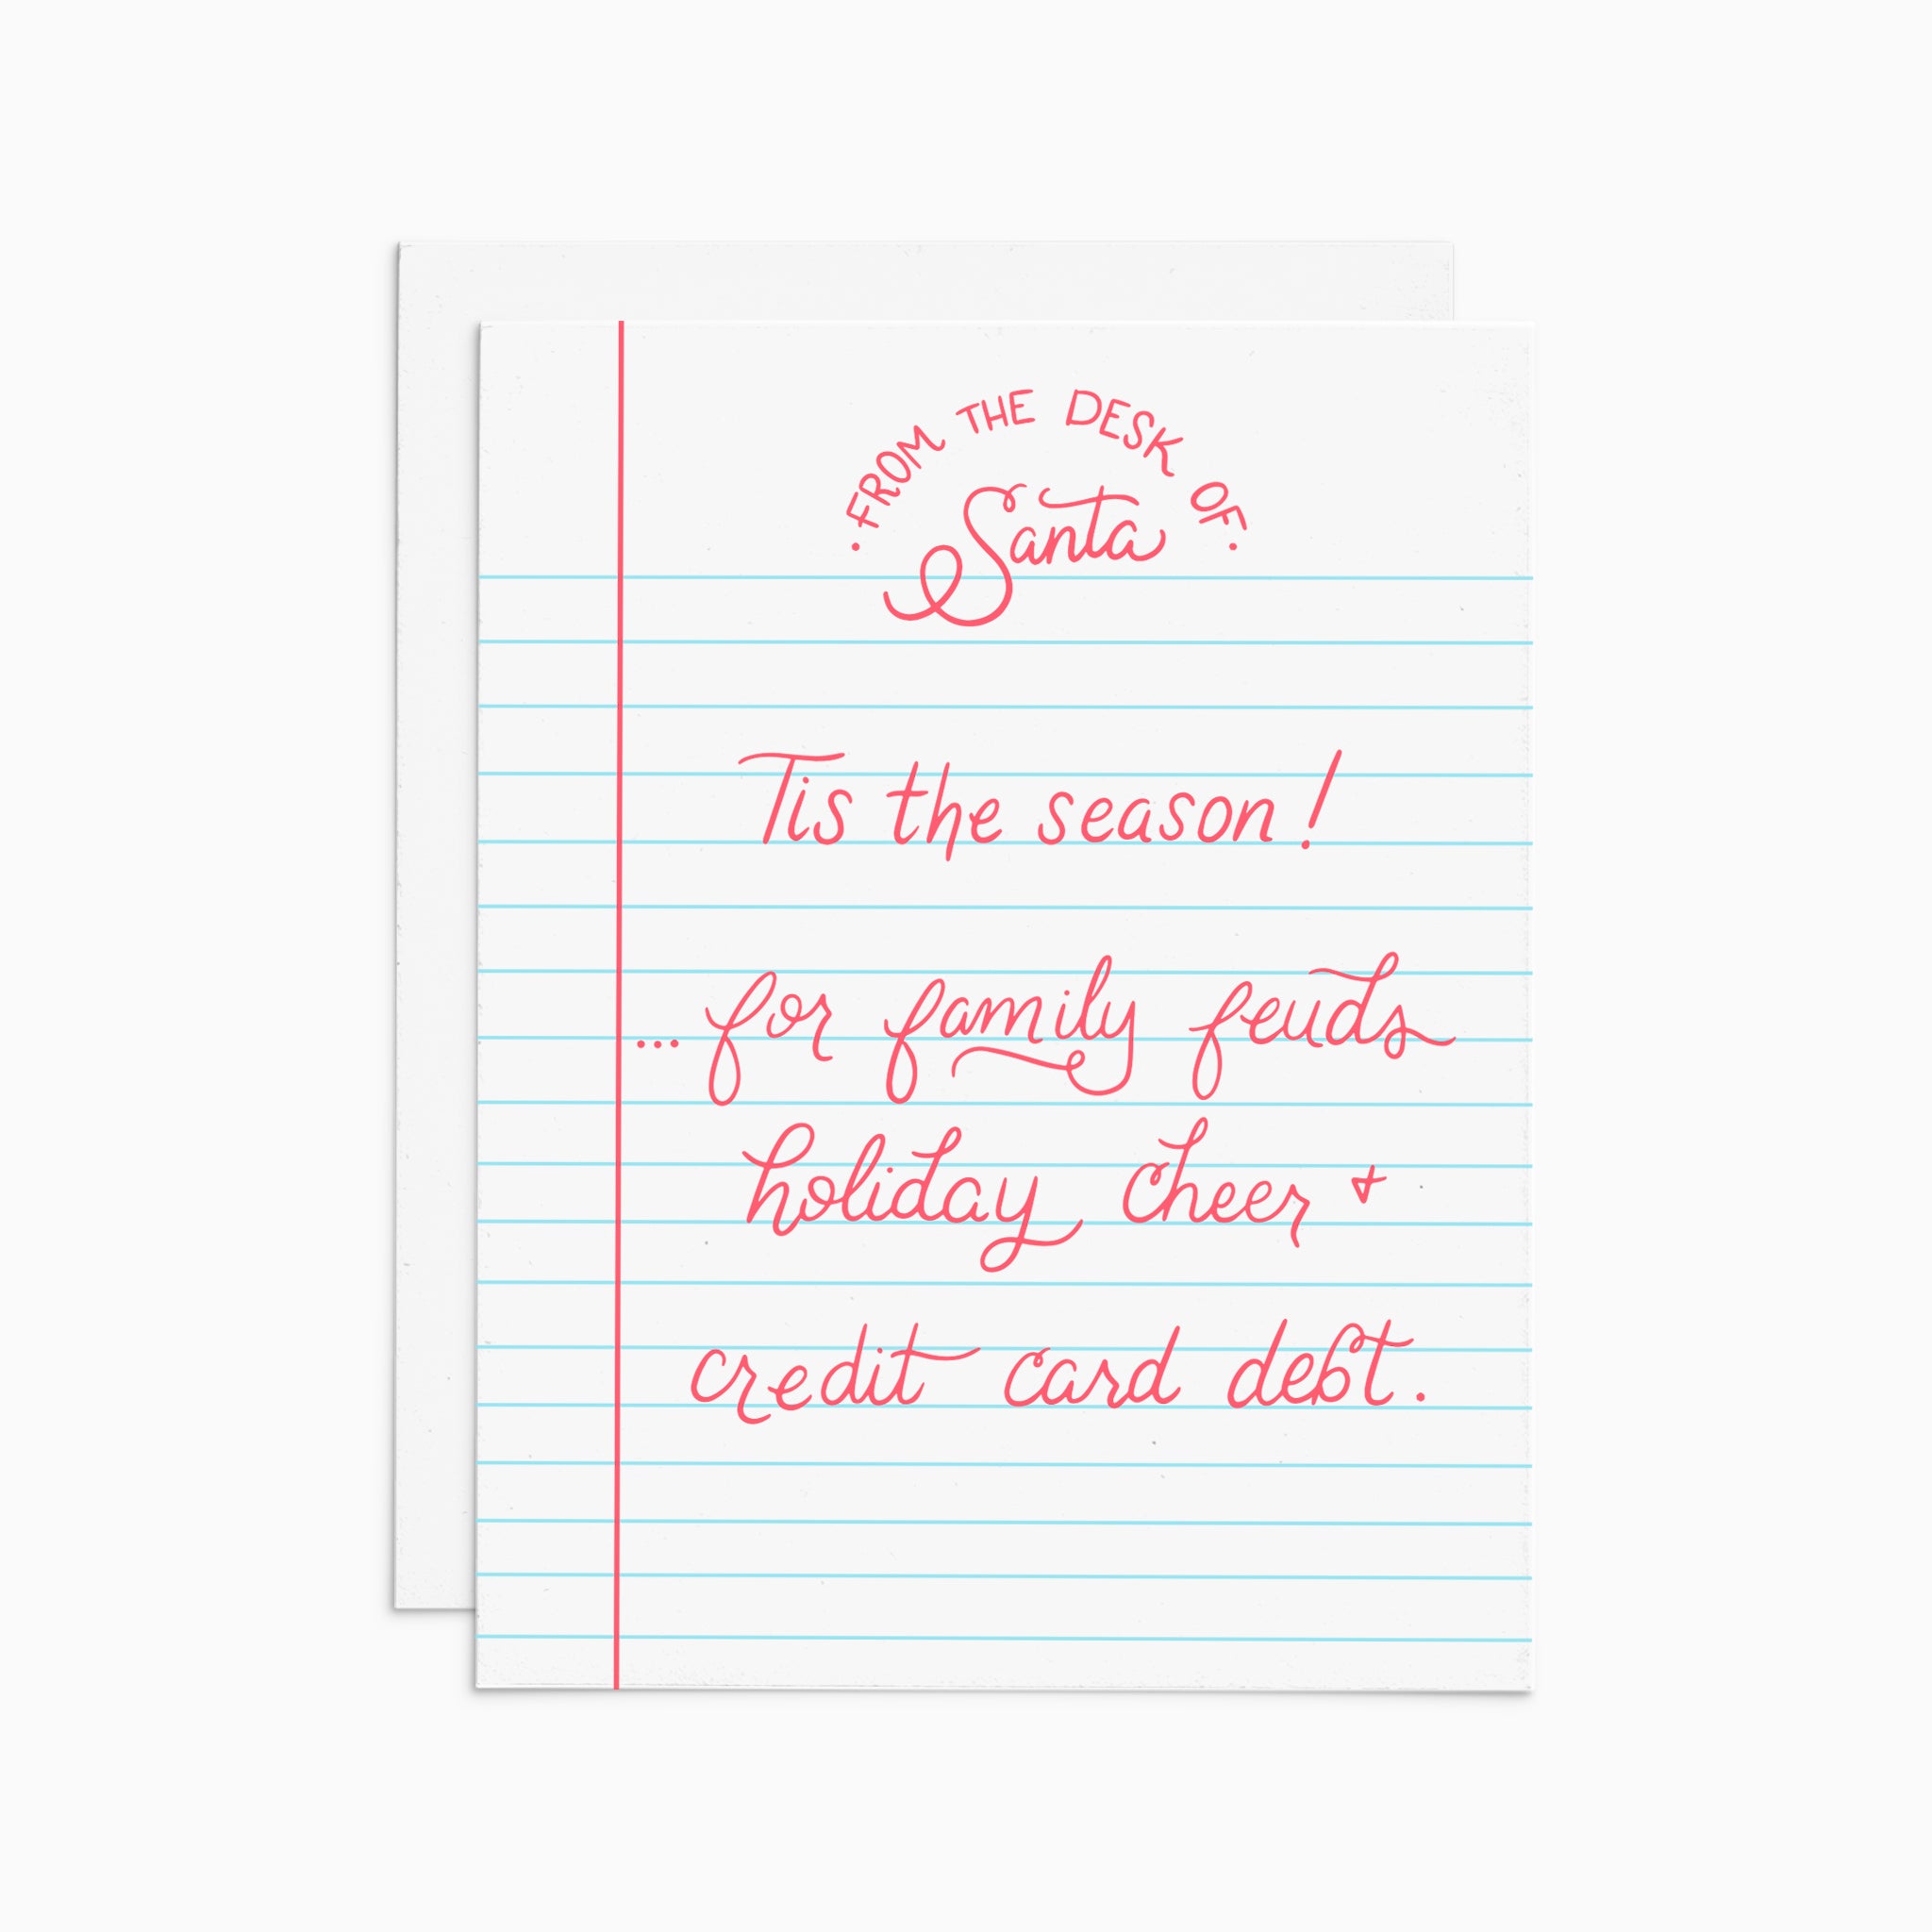 • FROM THE DESK OF •
Santa
Tis the season!
...for family feuds
holiday cheer +
credit card debt.